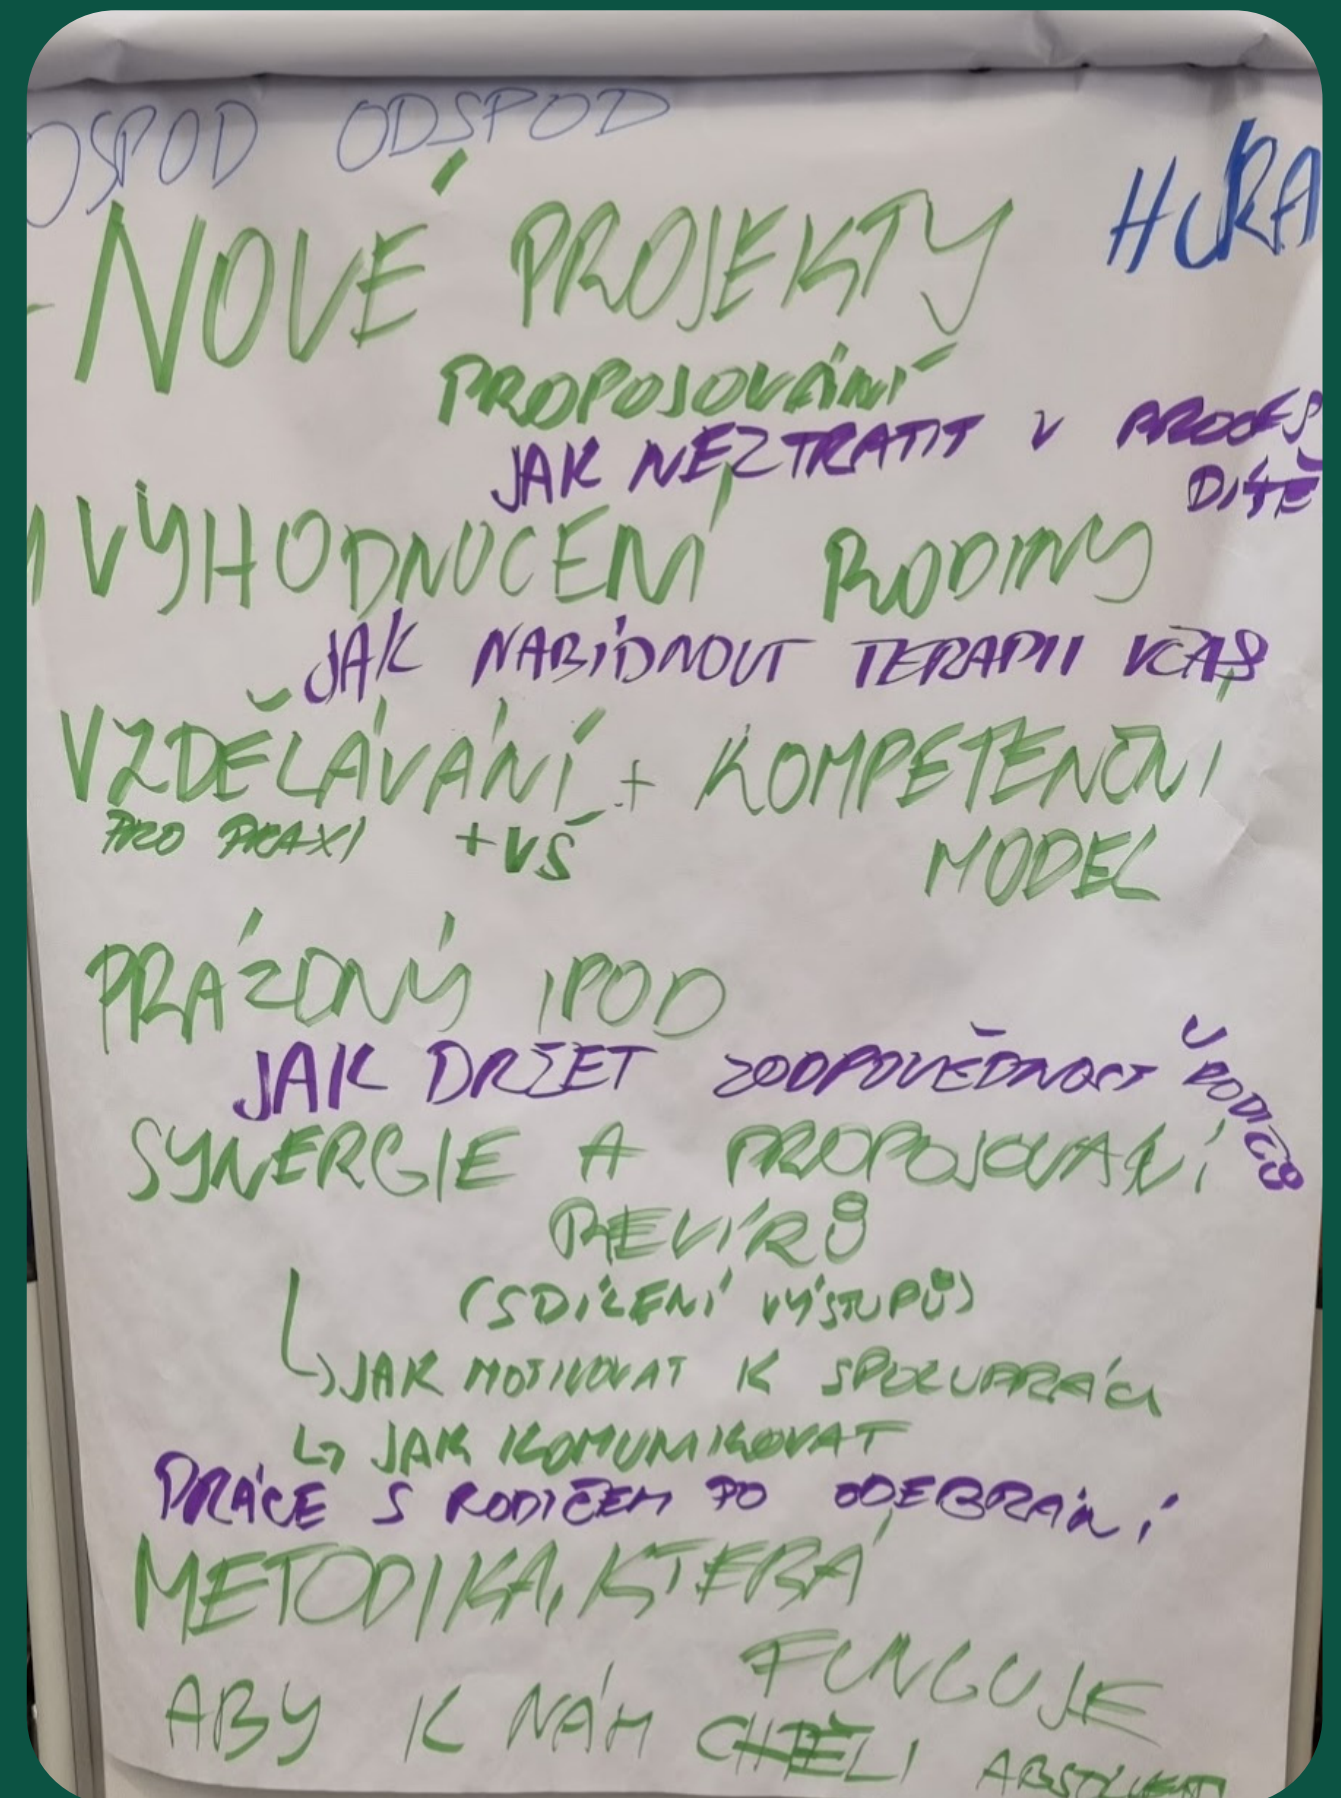 OSPOD ODSPOD
HURA
- NOVÉ PROJEKTY
PROPOJOVÁNÍ
JAK NEZTRATIT V PROCES
DÍTĚ
VÝHODNOCENÍ RODINY
JAK NABÍDNOUT TERAPII VČAS
VZDĚLÁVÁNÍ + KOMPETENČNÍ
PRO PRAXI + VŠ
MODEL
PRÁZDNÝ IPOD
JAK DRŽET ZODPOVĚDNOST U RODIČŮ
SYNERGIE A PROPOJOVÁNÍ
REVÍRŮ
(SDÍLENÍ VÝSTUPŮ)
JAK MOTIVOVAT K SPOLUPRÁCI
JAK KOMUNIKOVAT
PRÁCE S RODIČEM PO ODEBRÁNÍ
METODIKA, KTERÁ
FUNGUJE
ABY K NÁM CHTĚLI ABSOLVENTI